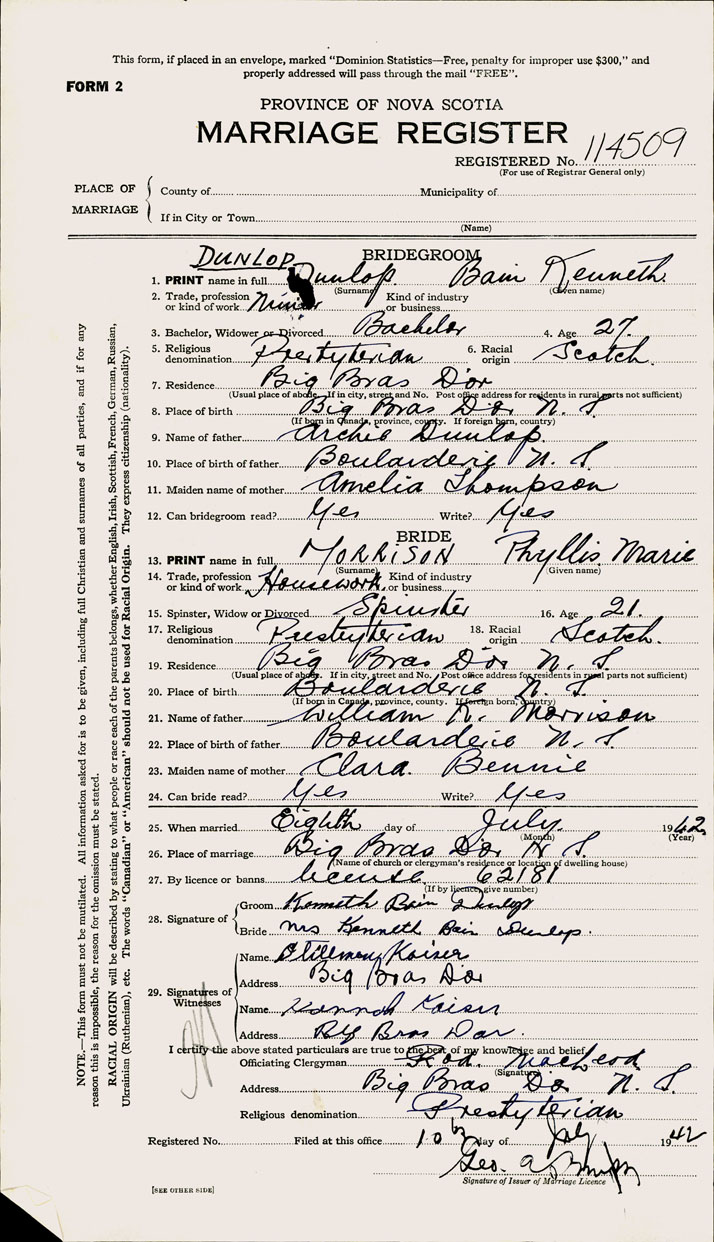 This form, if placed in an envelope, marked "Dominion Statistics—Free, penalty for improper use $300," and
properly addressed will pass through the mail "FREE".
FORM 2
PROVINCE OF NOVA SCOTIA
MARRIAGE REGISTER
REGISTERED No. 114509
(For use of Registrar General only)
PLACE OF MARRIAGE
County of Municipality of
If in City or Town
(Name)
DUNLOP BRIDEGROOM
1. PRINT name in full Dunlop Bain Kenneth
(Surname) (Given name)
2. Trade, profession or kind of work Miner Kind of industry or business
3. Bachelor, Widower or Divorced Bachelor 4. Age 27
5. Religious denomination Presbyterian 6. Racial origin Scotch.
7. Residence Big Bras D'or
(Usual place of abode. If in city, street and No. Post office address for residents in rural parts not sufficient)
8. Place of birth Big Bras D'or N. S.
(If born in Canada, province, county. If foreign born, country)
9. Name of father Archie Dunlop.
10. Place of birth of father Boularderie N. S.
11. Maiden name of mother Amelia Thompson
12. Can bridegroom read? Yes Write? Yes
BRIDE
13. PRINT name in full MORRISON Phyllis Marie
(Surname) (Given name)
14. Trade, profession or kind of work Housework. Kind of industry or business
15. Spinster, Widow or Divorced Spinster 16. Age 21.
17. Religious denomination Presbyterian 18. Racial origin Scotch.
19. Residence Big Bras D'or N. S.
(Usual place of abode. If in city, street and No. Post office address for residents in rural parts not sufficient)
20. Place of birth Boularderie N. S.
(If born in Canada, province, county. If foreign born, country)
21. Name of father William R. Morrison
22. Place of birth of father Boularderie N. S.
23. Maiden name of mother Clara. Bennie
24. Can bride read? Yes Write? Yes
25. When married Eighth day of July. 1942
(Month) (Year)
26. Place of marriage Big Bras D'or N. S.
(Name of church or clergyman's residence or location of dwelling house)
27. By licence or banns license 62181
(If by licence, give number)
28. Signature of
Groom Kenneth Bain Dunlop
Bride Mrs Kenneth Bain Dunlop.
29. Signatures of Witnesses
Name Kaiser
Address Big Bras D'or
Name Hannah Kaiser
Address Big Bras Dor.
I certify the above stated particulars are true to the best of my knowledge and belief.
Officiating Clergyman Rod. MacLeod.
(Signature)
Address Big Bras D'or N. S.
Religious denomination Presbyterian
Registered No. Filed at this office 10th day of July 1942
Geo. A.
Signature of Issuer of Marriage Licence
[SEE OTHER SIDE]
NOTE.—This form must not be mutilated. All information asked for is to be given, including full Christian and surnames of all parties, and if for any
reason this is impossible, the reason for the omission must be stated.
RACIAL ORIGIN will be described by stating to what people or race each of the parents belongs, whether English, Irish, Scottish, French, German, Russian,
Ukrainian (Ruthenian), etc. The words "Canadian" or "American" should not be used for Racial Origin. They express citizenship (nationality).